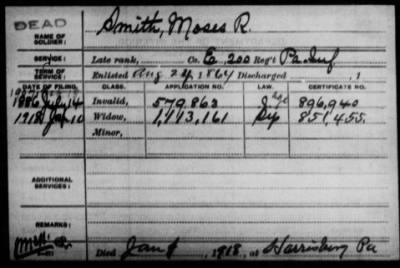 DEAD
NAME OF SOLDIER: Smith, Moses R.
SERVICE: Late rank, Co. E, 200 Reg't Pa Inf
TERM OF SERVICE: Enlisted Aug 24, 1864 Discharged , 1
DATE OF FILING. CLASS. APPLICATION NO. LAW. CERTIFICATE NO.
1886 July 14 Invalid, 579,863 896,940
1918 Jan 10 Widow, 1,113,161 851,455
Minor,
ADDITIONAL SERVICES:
REMARKS:
Died Jan , 1918, at Harrisburg Pa